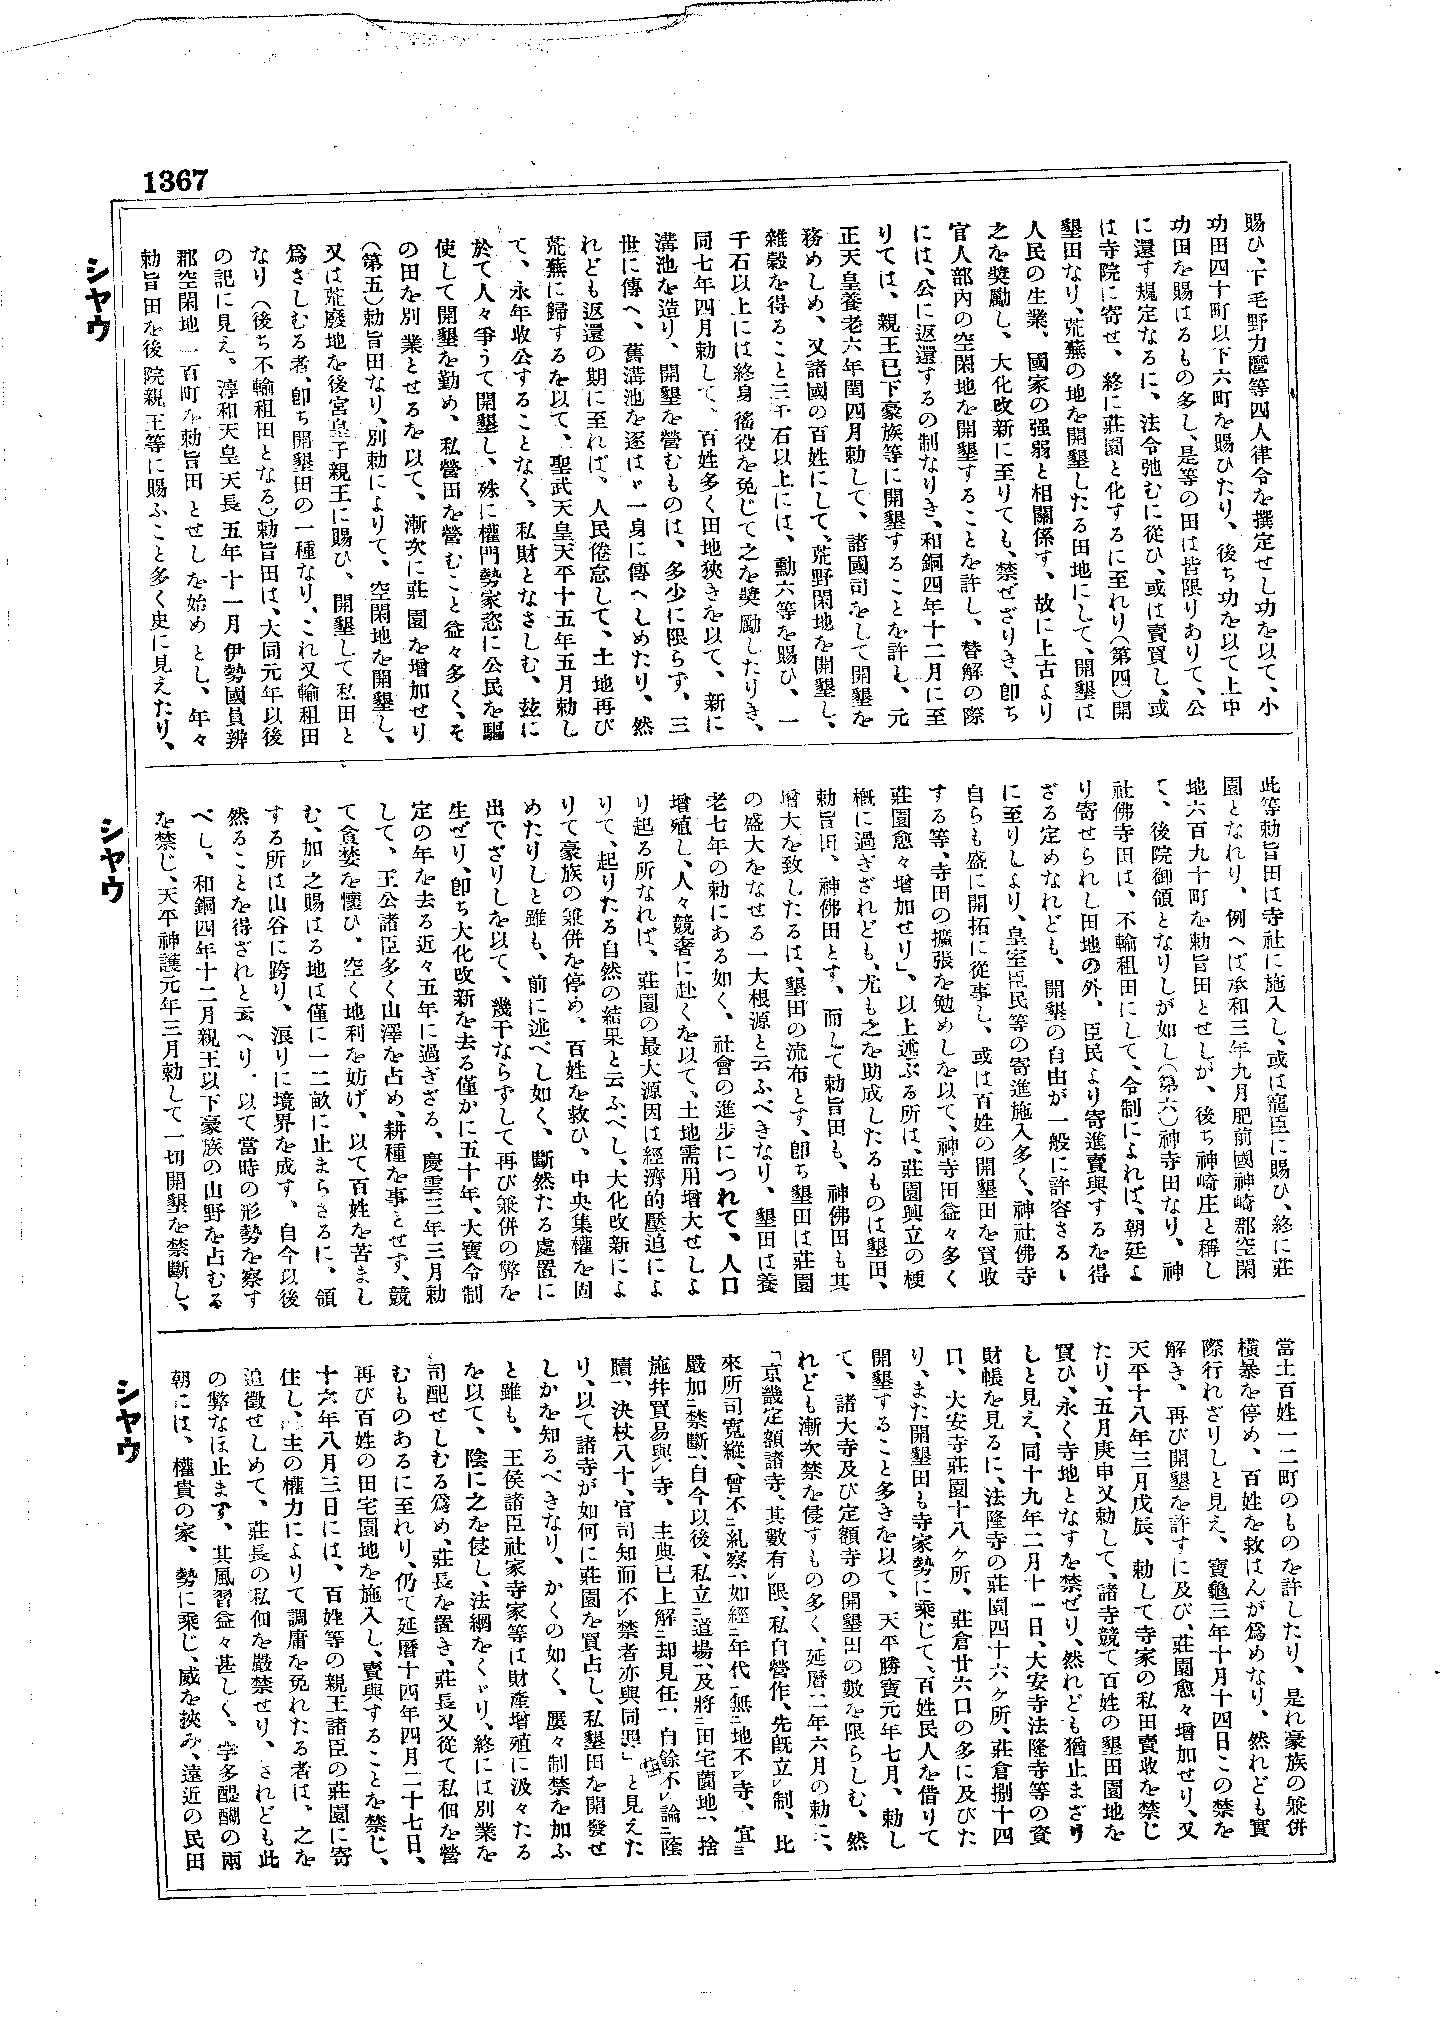 1367
シヤウ
賜ひ、下毛野力麿等四人律令を撰定せし功を以て、小
功田四十町以下六町を賜ひたり、後ち功を以て上中
功田を賜はるもの多し、是等の田は皆限りありて、公
に還す規定なるに、法令弛むに從ひ、或は賣買し、或
は寺院に寄せ、終に莊園と化するに至れり(第四)開
墾田なり、荒蕪の地を開墾したる田地にして、開墾は
人民の生業、國家の强弱と相關係す、故に上古より
之を奬勵し、大化改新に至りても、禁ぜざりき、卽ち
官人部內の空閑地を開墾することを許し、替解の際
には、公に返還するの制なりき、和銅四年十二月に至
りては、親王已下豪族等に開墾することを許し、元
正天皇養老六年閏四月勅して、諸國司をして開墾を
務めしめ、又諸國の百姓にして、荒野閑地を開墾し、
雜穀を得ること三千石以上には、勳六等を賜ひ、一
千石以上には終身徭役を免じて之を奬勵したりき、
同七年四月勅して、百姓多く田地狹きを以て、新に
溝池を造り、開墾を營むものは、多少に限らず、三
世に傳へ、舊溝池を逐はゞ一身に傳へしめたり、然
れども返還の期に至れば、人民倦怠して、土地再び
荒蕪に歸するを以て、聖武天皇天平十五年五月勅し
て、永年收公することなく、私財となさしむ、玆に
於て人々爭うて開墾し、殊に權門勢家恣に公民を驅
使して開墾を勤め、私營田を營むこと益々多く、そ
の田を別業とせるを以て、漸次に莊園を增加せり
(第五)勅旨田なり、別勅によりて、空閑地を開墾し、
又は荒廢地を後宮皇子親王に賜ひ、開墾して私田と
爲さしむる者、卽ち開墾田の一種なり、これ又輸租田
なり(後ち不輸租田となる)勅旨田は、大同元年以後
の記に見え、淳和天皇天長五年十一月伊勢國員辨
郡空閑地一百町を勅旨田とせしを始めとし、年々
勅旨田を後院親王等に賜ふこと多く史に見えたり、
シヤウ
此等勅旨田は寺社に施入し、或は寵臣に賜ひ、終に莊
園となれり、例へば承和三年九月肥前國神崎郡空閑
地六百九十町を勅旨田とせしが、後ち神崎庄と稱し
て、後院御領となりしが如し(第六)神寺田なり、神
社佛寺田は、不輸租田にして、令制によれば、朝廷よ
り寄せられし田地の外、臣民より寄進賣與するを得
ざる定めなれども、開墾の自由が一般に許容さるゝ
に至りしより、皇室臣民等の寄進施入多く、神社佛寺
自らも盛に開拓に從事し、或は百姓の開墾田を買收
する等、寺田の擴張を勉めしを以て、神寺田益々多く
莊園愈々增加せり」、以上述ぶる所は、莊園興立の梗
槪に過ぎざれども、尤も之を助成したるものは墾田、
勅旨田、神佛田とす、而して勅旨田も、神佛田も其
增大を致したるは、墾田の流布とす、卽ち墾田は莊園
の盛大をなせる一大根源と云ふべきなり、墾田は養
老七年の勅にある如く、社會の進步につれて、人口
增殖し、人々競奢に赴くを以て、土地需用增大せしよ
り起る所なれば、莊園の最大源因は經濟的壓迫によ
りて、起りたる自然の結果と云ふべし、大化改新によ
りて豪族の兼併を停め、百姓を救ひ、中央集權を固
めたりしと雖も、前に述べし如く、斷然たる處置に
出でざりしを以て、幾干ならずして再び兼併の弊を
生ぜり、卽ち大化改新を去る僅かに五十年、大寶令制
定の年を去る近々五年に過ぎざる、慶雲三年三月勅
して、王公諸臣多く山澤を占め、耕種を事とせず、競
て貪婪を懷ひ、空く地利を妨げ、以て百姓を苦まし
む、加レ之賜はる地は僅に一二畝に止まらさるに、領
する所は山谷に跨り、浪りに境界を成す、自今以後
然ることを得ざれと云へり、以て當時の形勢を察す
べし、和銅四年十二月親王以下豪族の山野を占むる
を禁じ、天平神護元年三月勅して一切開墾を禁斷し、
シヤウ
當土百姓一二町のものを許したり、是れ豪族の兼併
橫暴を停め、百姓を救はんが爲めなり、然れども實
際行れざりしと見え、寶龜三年十月十四日この禁を
解き、再び開墾を許すに及び、莊園愈々增加せり、又
天平十八年三月戊辰、勅して寺家の私田賣收を禁じ
たり、五月庚申又勅して、諸寺競て百姓の墾田園地を
買ひ、永く寺地となすを禁ぜり、然れども猶止まざり
しと見え、同十九年二月十一日、大安寺法隆寺等の資
財帳を見るに、法隆寺の莊園四十六ヶ所、莊倉捌十四
口、大安寺莊園十八ヶ所、莊倉廿六口の多に及びた
り、また開墾田も寺家勢に乘じて、百姓民人を借りて
開墾すること多きを以て、天平勝寶元年七月、勅し
て、諸大寺及び定額寺の開墾田の數を限らしむ、然
れども漸次禁を侵すもの多く、延曆二年六月の勅に、
「京畿定額諸寺、其數有レ限、私自營作、先旣立レ制、比
來所司寬縱、曾不二糺察一、如經二年代一、無二地不一レ寺、宜二
嚴加二禁斷一、自今以後、私立二道場一、及將二田宅園地一、捨
施幷買易與レ寺、主典已上解二却見任一、自餘不レ論二蔭
贖一、決杖八十、官司知而不レ禁者亦與同罪」と見えた
り、以て諸寺が如何に莊園を買占し、私墾田を開發せ
しかを知るべきなり、かくの如く、屢々制禁を加ふ
と雖も、王侯諸臣社家寺家等は財產增殖に汲々たる
を以て、陰に之を侵し、法綱をくゞり、終には別業を
司配せしむる爲め、莊長を置き、莊長又從て私佃を營
むものあるに至れり、仍て延曆十四年四月二十七日、
再び百姓の田宅園地を施入し、賣與することを禁じ、
十六年八月三日には、百姓等の親王諸臣の莊園に寄
住し、主の權力によりて調庸を免れたる者は、之を
追徵せしめて、莊長の私佃を嚴禁せり、されども此
の弊なほ止まず、其風習益々甚しく、宇多醍醐の兩
朝には、權貴の家、勢に乘じ、威を挾み、遠近の民田